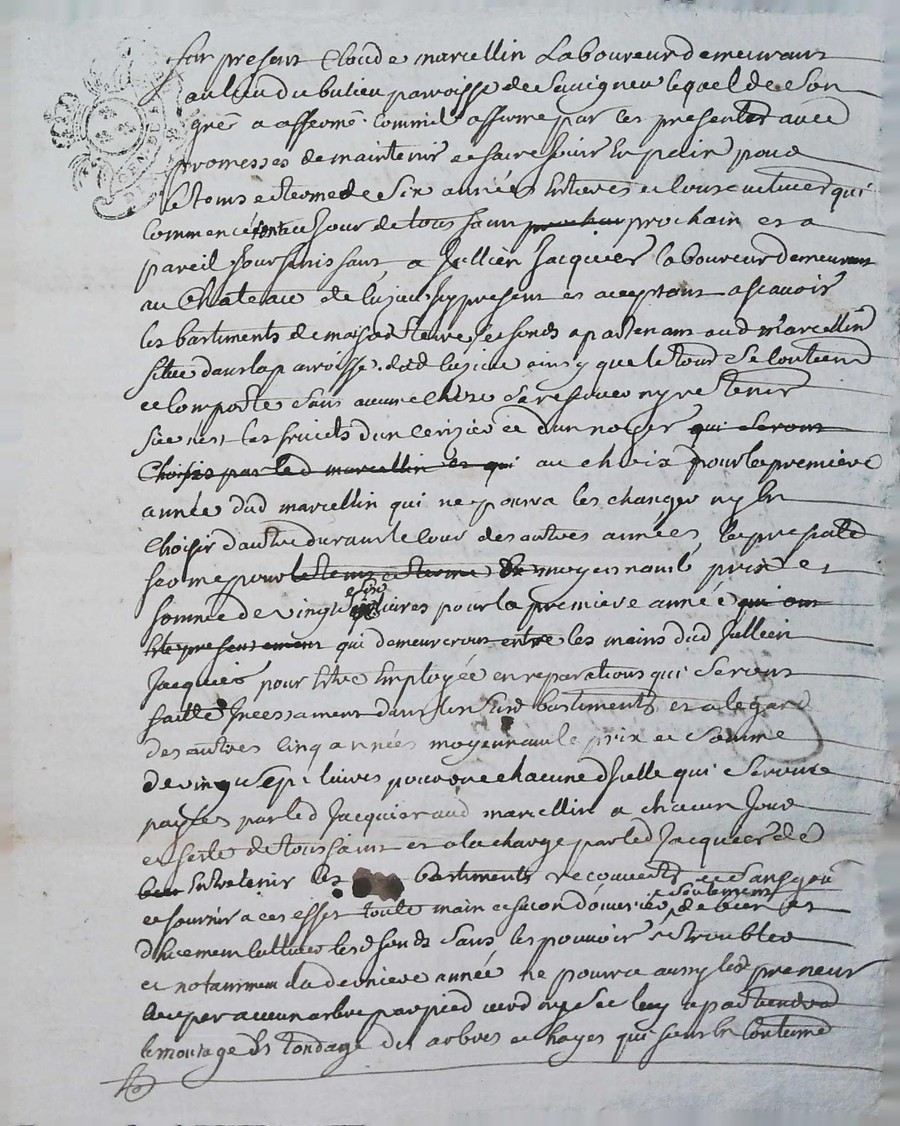 fut present Cloude marcellin Laboureur demeurant
au lieu du bulieu parroisse de Savigneu lequel de son
gréé a affermé comme il afferme par ces presentes avec
promesses de maintenir et faire jouir En paix pour
le tems et terme de six années Entieres et Consecutives qui
commenceront au Jour de toussaint prochain et a
pareil Jour finissant a Jullien Jacquier laboureur demeurant
au Chateau de lusieu Icy present et aceptant ascavoir
les bastiments de maison terres et fonds apartenant aud marcellin
situé dans la parroisse dud lusieu ainsy que le tout se Contient
et Comporte sans aucune Chose se reserver ny retenir
Sie nest les fruicts dun Cerizier et dun noyer qui seront
Choisis par led marcellin et qui au choix pour la premiere
année dud marcellin qui ne poura les changer ny En
Choisir dautre durant le Cour des autres années, la presente
ferme pour le tems et terme moyennant le prix et
somme de vingt et six livres pour la premiere année qui ont
presentement qui demeureront entre les mains dud Jullien
Jacquier pour Etre Employée en reparations qui seront
faitte Incessament dans lesd bastiments et a legard
des autres Cinq années moyennant le prix et somme
de vingt sept livres pour une chacune dIcelle qui seront
payées par led Jacquier aud marcellin a chacun Jour
et feste de toussaint et a la charge par led Jacquier de
bien Entretenir les bastiments recouverts et
et fournir a ces effet toute main et facon douvriers, de bien et
dhucement Cultiver lesd fonds sans les pouvoir
et notamment la derniere année ne poura aussy led preneur
Couper aucun arbre par pied verd ny sec luy apartiendra
le moulage et tondage des arbres et hayes qui sont En Coutume